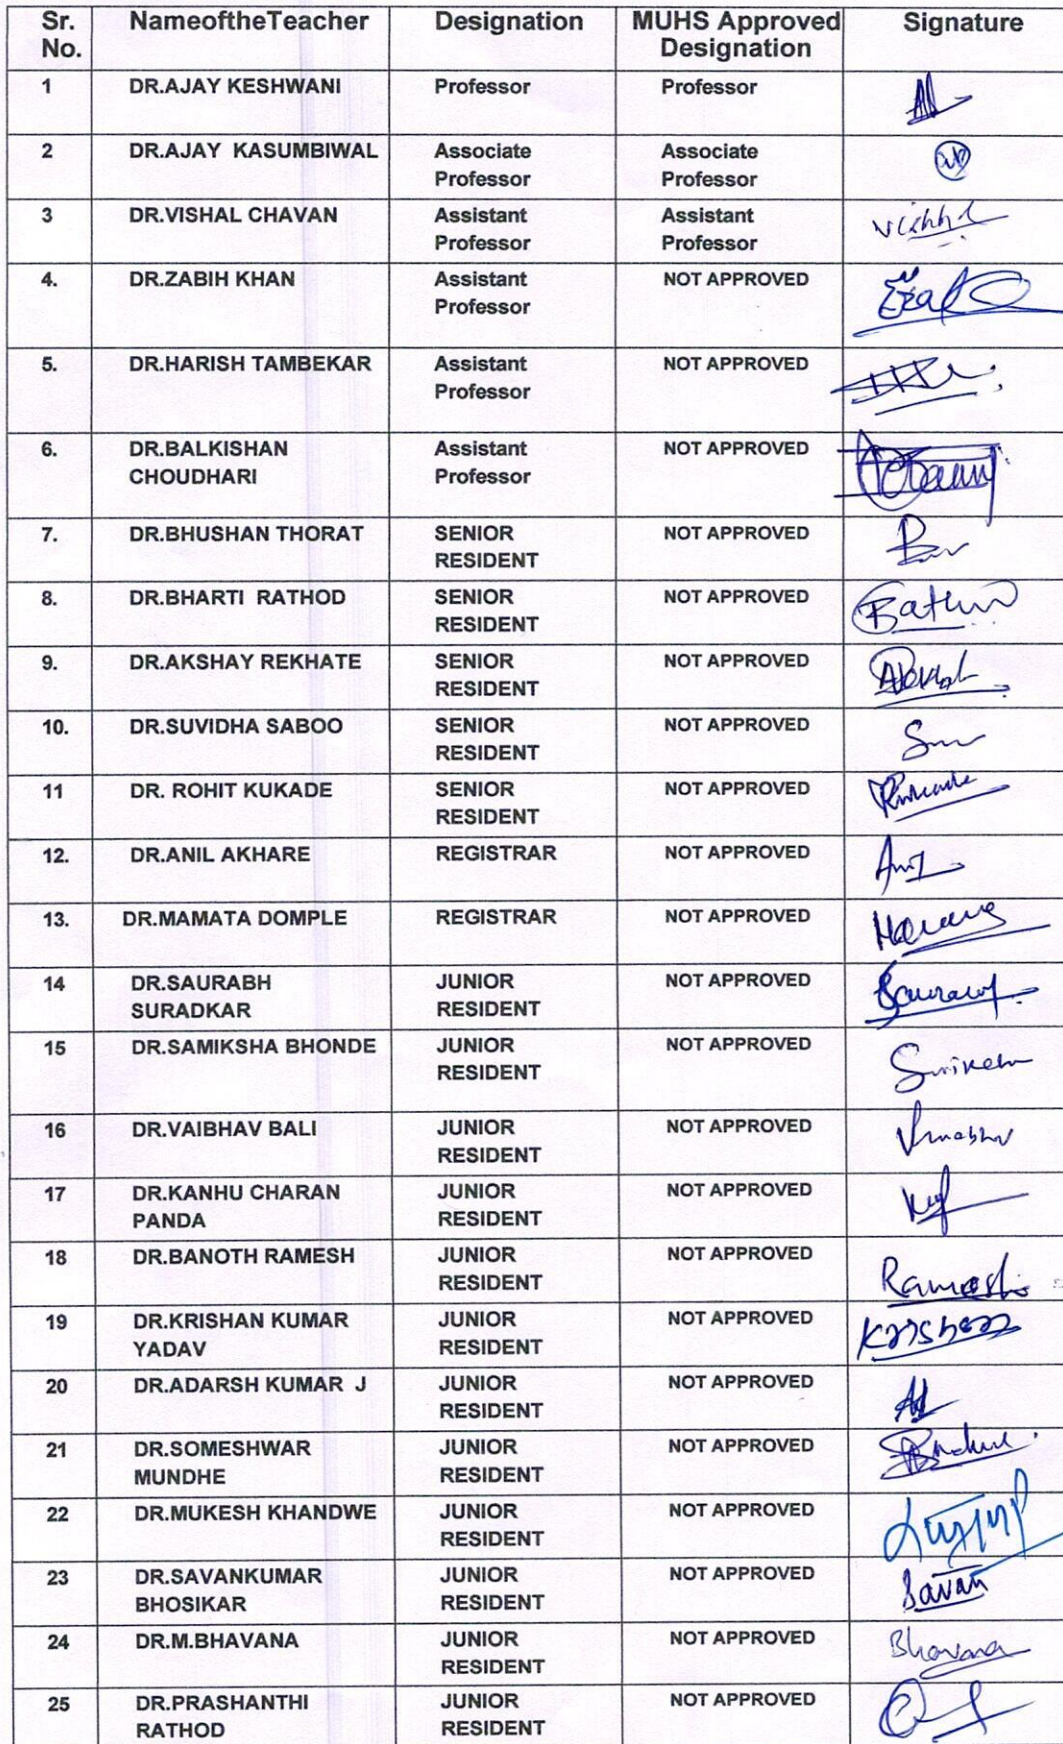 Sr. No. NameoftheTeacher Designation MUHS Approved Designation Signature
1 DR.AJAY KESHWANI Professor Professor
2 DR.AJAY KASUMBIWAL Associate Professor Associate Professor
3 DR.VISHAL CHAVAN Assistant Professor Assistant Professor
4. DR.ZABIH KHAN Assistant Professor NOT APPROVED
5. DR.HARISH TAMBEKAR Assistant Professor NOT APPROVED
6. DR.BALKISHAN CHOUDHARI Assistant Professor NOT APPROVED
7. DR.BHUSHAN THORAT SENIOR RESIDENT NOT APPROVED
8. DR.BHARTI RATHOD SENIOR RESIDENT NOT APPROVED
9. DR.AKSHAY REKHATE SENIOR RESIDENT NOT APPROVED
10. DR.SUVIDHA SABOO SENIOR RESIDENT NOT APPROVED
11 DR. ROHIT KUKADE SENIOR RESIDENT NOT APPROVED
12. DR.ANIL AKHARE REGISTRAR NOT APPROVED
13. DR.MAMATA DOMPLE REGISTRAR NOT APPROVED
14 DR.SAURABH SURADKAR JUNIOR RESIDENT NOT APPROVED
15 DR.SAMIKSHA BHONDE JUNIOR RESIDENT NOT APPROVED
16 DR.VAIBHAV BALI JUNIOR RESIDENT NOT APPROVED
17 DR.KANHU CHARAN PANDA JUNIOR RESIDENT NOT APPROVED
18 DR.BANOTH RAMESH JUNIOR RESIDENT NOT APPROVED Ramesh
19 DR.KRISHAN KUMAR YADAV JUNIOR RESIDENT NOT APPROVED
20 DR.ADARSH KUMAR J JUNIOR RESIDENT NOT APPROVED
21 DR.SOMESHWAR MUNDHE JUNIOR RESIDENT NOT APPROVED
22 DR.MUKESH KHANDWE JUNIOR RESIDENT NOT APPROVED
23 DR.SAVANKUMAR BHOSIKAR JUNIOR RESIDENT NOT APPROVED Savan
24 DR.M.BHAVANA JUNIOR RESIDENT NOT APPROVED Bhavana
25 DR.PRASHANTHI RATHOD JUNIOR RESIDENT NOT APPROVED